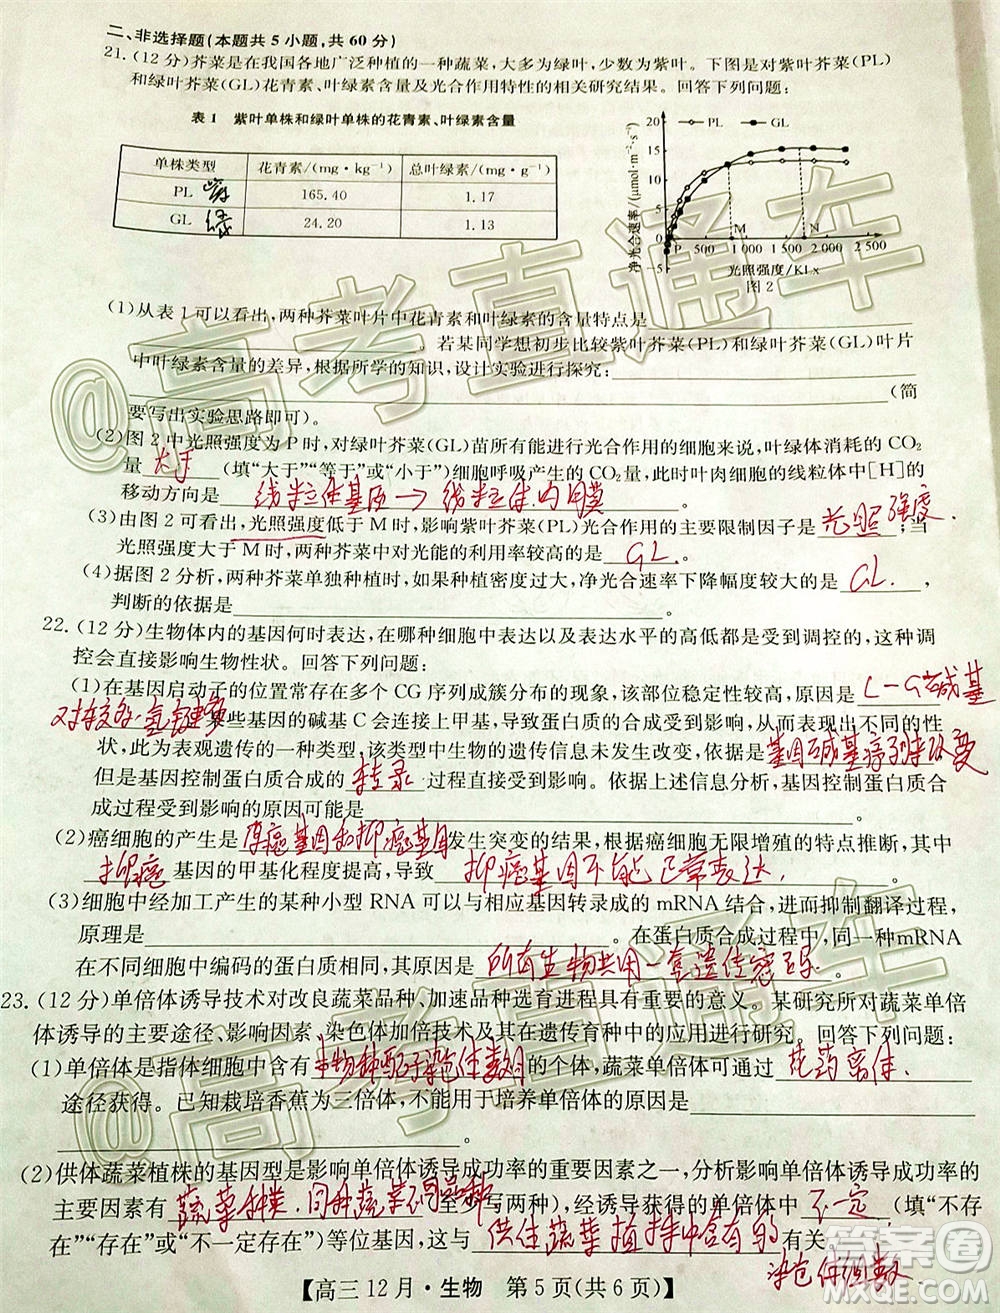 二、非选择题(本题共5小题,共60分)
21.(12分)芥菜是在我国各地广泛种植的一种蔬菜,大多为绿叶,少数为紫叶。下图是对紫叶芥菜(PL)
和绿叶芥菜(GL)花青素、叶绿素含量及光合作用特性的相关研究结果。回答下列问题:
表1 紫叶单株和绿叶单株的花青素、叶绿素含量
单株类型 花青素/(mg·kg⁻¹) 总叶绿素/(mg·g⁻¹)
PL 紫 165.40 1.17
GL 绿 24.20 1.13
净光合速率/(μmol·m⁻²·s⁻¹)
20
15
10
5
0
-5
PL GL
P 500 M 1 000 1 500 N 2 000 2 500
光照强度/KLx
图2
(1)从表1可以看出,两种芥菜叶片中花青素和叶绿素的含量特点是
。若某同学想初步比较紫叶芥菜(PL)和绿叶芥菜(GL)叶片
中叶绿素含量的差异,根据所学的知识,设计实验进行探究:
(简
要写出实验思路即可)。
(2)图2中光照强度为P时,对绿叶芥菜(GL)苗所有能进行光合作用的细胞来说,叶绿体消耗的CO₂
量 大于 (填“大于”“等于”或“小于”)细胞呼吸产生的CO₂量,此时叶肉细胞的线粒体中[H]的
移动方向是 线粒体基质→线粒体内膜 。
(3)由图2可看出,光照强度低于M时,影响紫叶芥菜(PL)光合作用的主要限制因子是 光照强度 ;当
光照强度大于M时,两种芥菜中对光能的利用率较高的是 GL 。
(4)据图2分析,两种芥菜单独种植时,如果种植密度过大,净光合速率下降幅度较大的是 GL ,
判断的依据是 。
22.(12分)生物体内的基因何时表达,在哪种细胞中表达以及表达水平的高低都受到调控的,这种调
控会直接影响生物性状。回答下列问题:
(1)在基因启动子的位置常存在多个CG序列成簇分布的现象,该部位稳定性较高,原因是 C-G碱基
对较多,氢键多 。某些基因的碱基C会连接上甲基,导致蛋白质的合成受到影响,从而表现出不同的性
状,此为表观遗传的一种类型,该类型中生物的遗传信息未发生改变,依据是 基因碱基序列未改变
但是基因控制蛋白质合成的 转录 过程直接受到影响。依据上述信息分析,基因控制蛋白质合
成过程受到影响的原因可能是 。
(2)癌细胞的产生是 原癌基因和抑癌基因 发生突变的结果,根据癌细胞无限增殖的特点推断,其中
抑癌 基因的甲基化程度提高,导致 抑癌基因不能正常表达 。
(3)细胞中经加工产生的某种小型RNA可以与相应基因转录成的mRNA结合,进而抑制翻译过程,
原理是 。在蛋白质合成过程中,同一种mRNA
在不同细胞中编码的蛋白质相同,原因是 所有生物共用一套遗传密码 。
23.(12分)单倍体诱导技术对改良蔬菜品种、加速品种选育进程具有重要的意义。某研究所对蔬菜单倍
体诱导的主要途径、影响因素、染色体加倍技术及其在遗传育种中的应用进行研究。回答下列问题:
(1)单倍体是指体细胞中含有 本物种配子染色体数目 的个体,蔬菜单倍体可通过 花药离体
途径获得。已知栽培香蕉为三倍体,不能用于培养单倍体的原因是
。
(2)供体蔬菜植株的基因型是影响单倍体诱导成功率的重要因素之一,分析影响单倍体诱导成功率的
主要因素有 蔬菜种类、同种蔬菜不同品种 (至少写两种),经诱导获得的单倍体中 不一定 (填“不存
在”“存在”或“不一定存在”)等位基因,这与 供体蔬菜植株中含有的 有关。
染色体组数
【高三12月·生物 第5页(共6页)】
@高考直通车
@高考直通车
答案圈